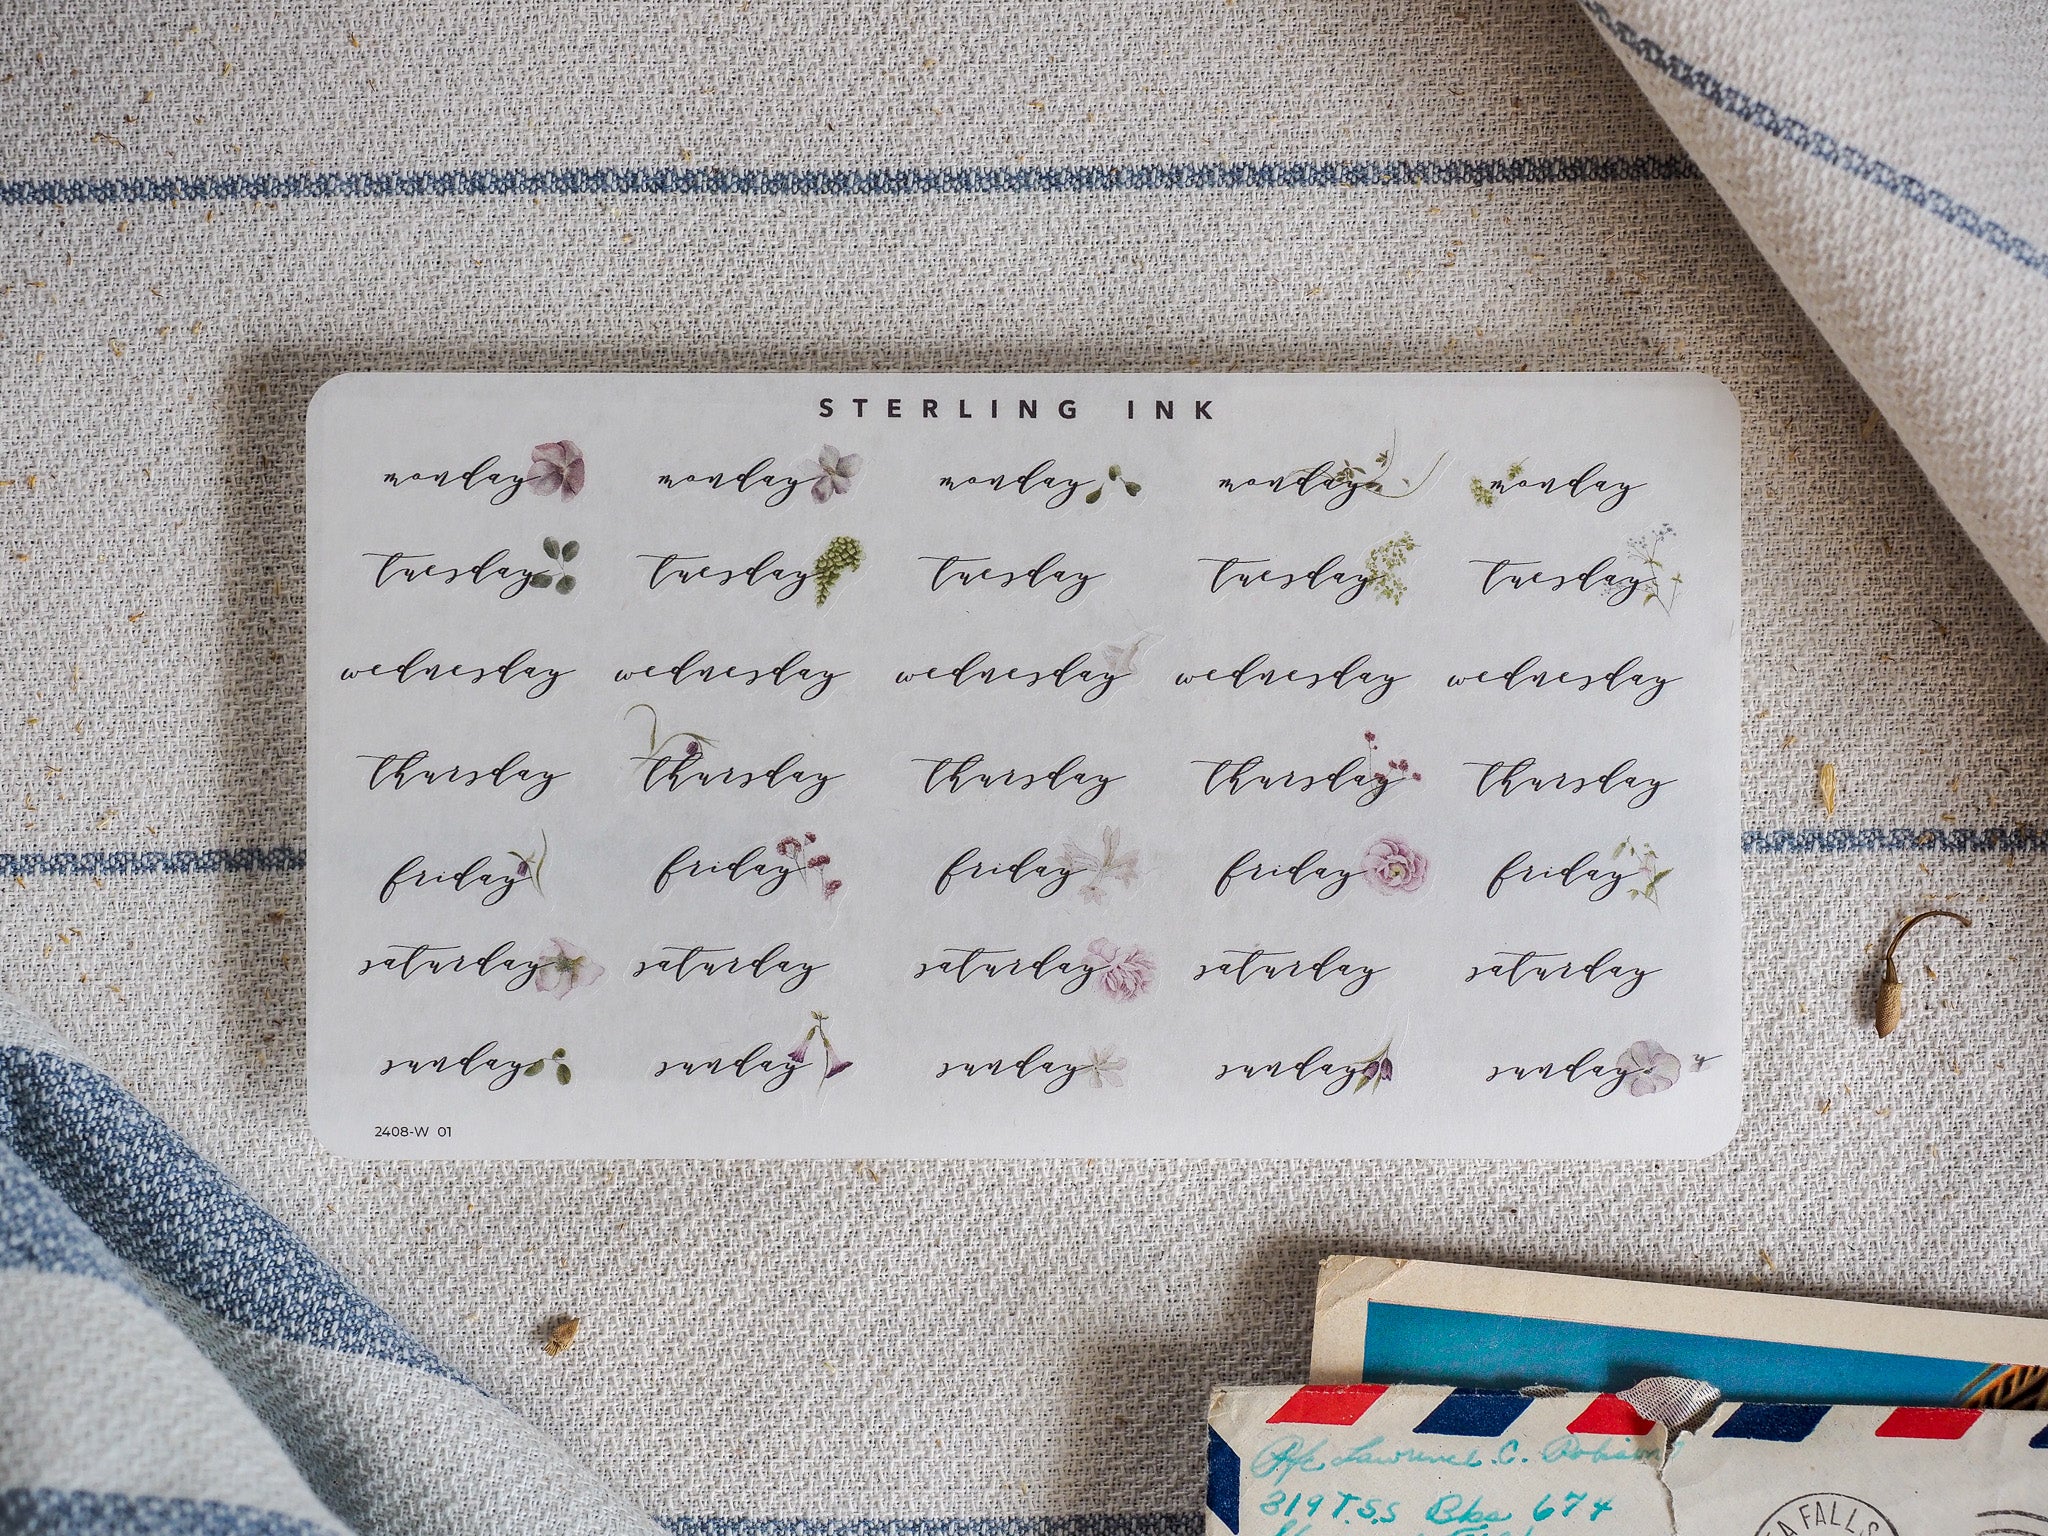 STERLING INK
monday monday monday monday monday
tuesday tuesday tuesday tuesday tuesday
wednesday wednesday wednesday wednesday wednesday
thursday thursday thursday thursday thursday
friday friday friday friday friday
saturday saturday saturday saturday saturday
sunday sunday sunday sunday sunday
2408-W 01
Pfc Lawrence C.
319 T.S.S 674
FALLS